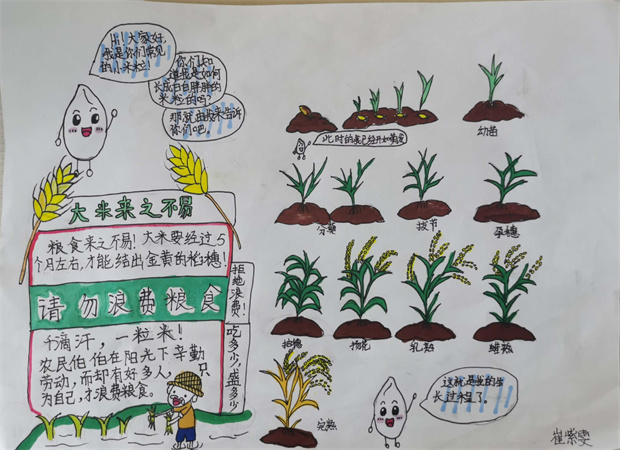 嗨!大家好,
我是你们常见
的小米粒!
你们知
道我是如何
长成白白胖胖的
米粒的吗?
那就由我来告诉
你们吧!
此时的我已经开始萌发
幼苗
分蘖
拔节
孕穗
抽穗
扬花
乳熟
蜡熟
完熟
大米来之不易
粮食来之不易!大米要经过5
个月左右,才能结出金黄的稻穗!
请勿浪费粮食
千滴汗,一粒米!
农民伯伯在阳光下辛勤
劳动,而却有好多人,只
为自己,才浪费粮食。
拒绝浪费!
吃多少,盛多少
这就是我的生
长过程了。
崔紫雯